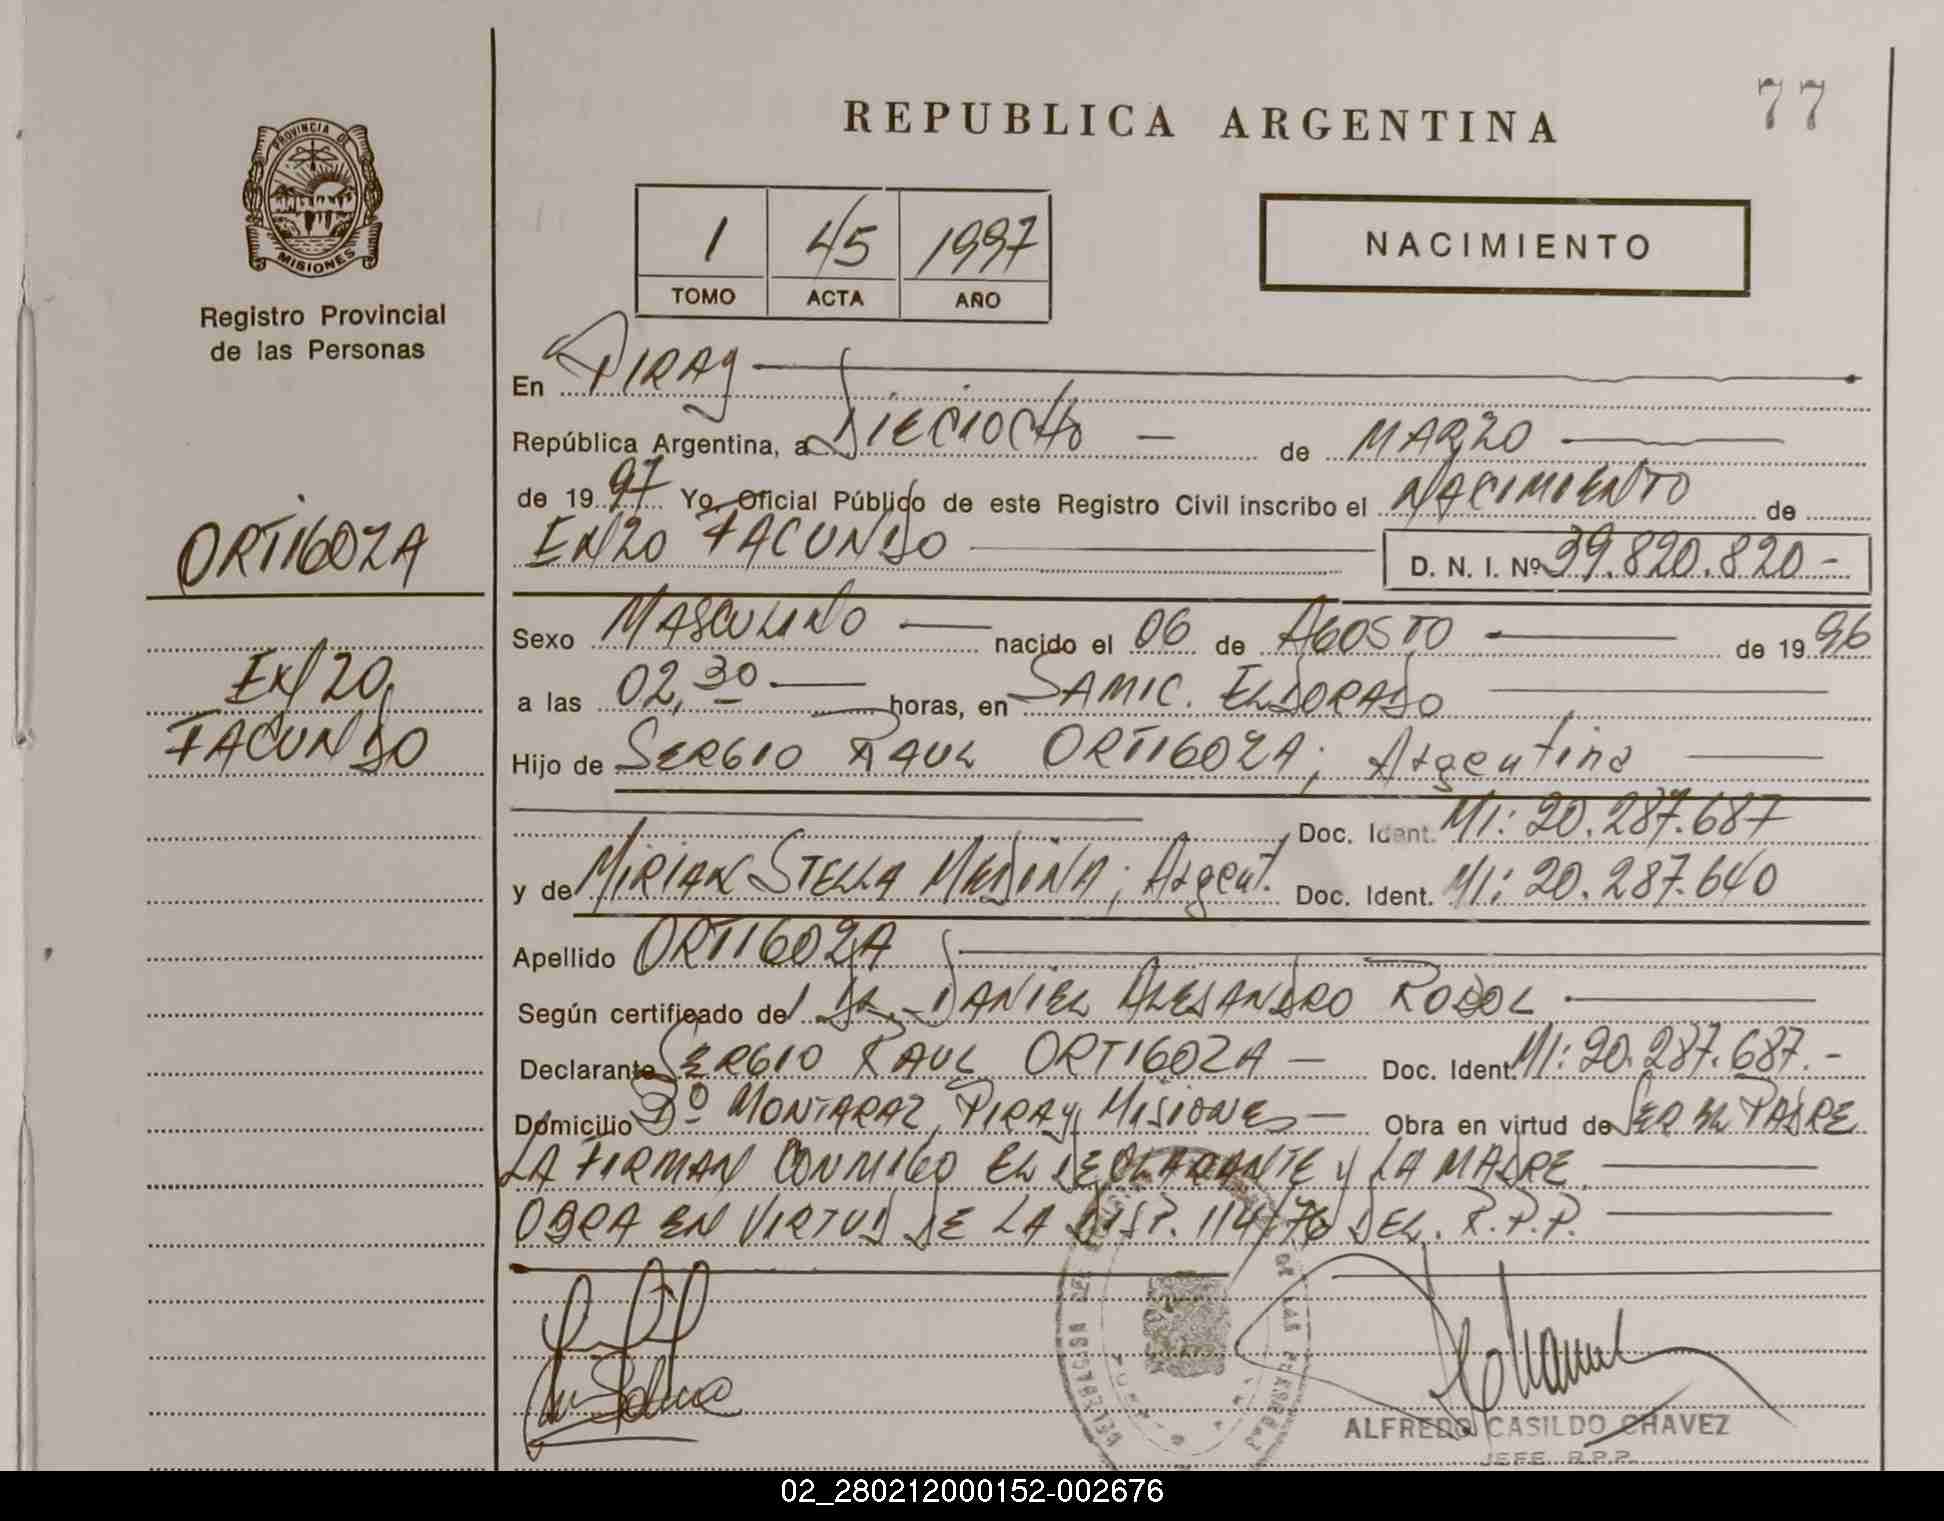 77
REPUBLICA ARGENTINA
PROVINCIA DE
MISIONES
Registro Provincial
de las Personas
1 45 1997
TOMO ACTA AÑO
NACIMIENTO
En PIRAY
República Argentina, a DIECIOCHO — de MARZO
de 19 97 Yo, Oficial Público de este Registro Civil inscribo el NACIMIENTO de
ENZO FACUNDO D. N. I. Nº 39.820.820-
ORTIGOZA
ENZO
FACUNDO
Sexo MASCULINO nacido el 06 de AGOSTO de 19 96
a las 02,30 horas, en SAMIC. ELDORADO
Hijo de SERGIO RAUL ORTIGOZA; Argentina
Doc. Ident. MI: 20.287.687
y de MIRIAN STELLA MEDINA; Argent. Doc. Ident. MI: 20.287.640
Apellido ORTIGOZA
Según certificado de DANIEL ALEJANDRO
Declarante SERGIO RAUL ORTIGOZA — Doc. Ident. MI: 20.287.687.-
Domicilio Bº MONTARAZ, PIRAY, MISIONES — Obra en virtud de SER EL PADRE
LA FIRMAN CONMIGO EL DECLARANTE Y LA MADRE
OBRA EN VIRTUD DE LA DISP. 114/76 DEL. R.P.P.
DE LAS PERSONAS
ALFREDO CASILDO CHAVEZ
JEFE R.P.P.
02_280212000152-002676